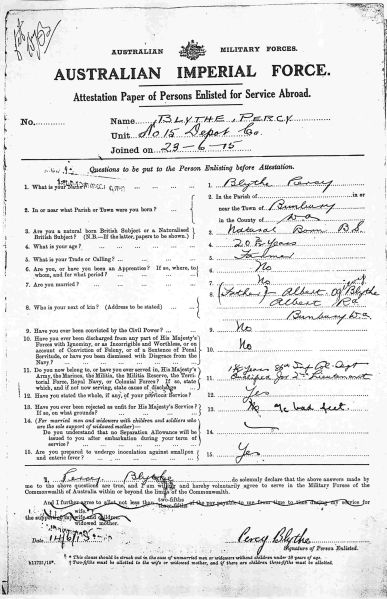 AUSTRALIAN MILITARY FORCES.
AUSTRALIAN IMPERIAL FORCE.
Attestation Paper of Persons Enlisted for Service Abroad.
No. Name BLYTHE, PERCY
Unit No 15 Depot Co.
Joined on 29-6-15
Questions to be put to the Person Enlisting before Attestation.
1. What is your Name? 1. Blythe Percy
2. In or near what Parish or Town were you born? 2. In the Parish of
near the Town of Bunbury
in the County of W.A
3. Are you a natural born British Subject or a Naturalised British Subject? (N.B.—If the latter, papers to be shown.) 3. Natural Born B.S.
4. What is your age? 4. 20 Years
5. What is your Trade or Calling? 5. Farmer
6. Are you, or have you been an Apprentice? If so, where, to whom, and for what period? 6. No
7. Are you married? 7. No
8. Who is your next of kin? (Address to be stated) 8. (Father) Albert Blythe
Albert Rd
Bunbury W.A
9. Have you ever been convicted by the Civil Power? 9. No
10. Have you ever been discharged from any part of His Majesty's Forces with Ignominy, or as Incorrigible and Worthless, or on account of Conviction of Felony, or of a Sentence of Penal Servitude, or have you been dismissed with Disgrace from the Navy? 10. No
11. Do you now belong to, or have you ever served in, His Majesty's Army, the Marines, the Militia, the Militia Reserve, the Territorial Force, Royal Navy, or Colonial Forces? If so, state which, and if not now serving, state cause of discharge 11. Years Inf
for 2nd Lieutenant
12. Have you stated the whole, if any, of your previous Service? 12. Yes
13. Have you ever been rejected as unfit for His Majesty's Service? If so, on what grounds? 13. bad feet.
14. (For married men and widowers with children and soldiers who are the sole support of widowed mother)—
Do you understand that no Separation Allowance will be issued to you after embarkation during your term of service? 14.
15. Are you prepared to undergo inoculation against smallpox and enteric fever? 15. Yes
I, Percy Blythe do solemnly declare that the above answers made by me to the above questions are true, and I am willing and hereby voluntarily agree to serve in the Military Forces of the Commonwealth of Australia within or beyond the limits of the Commonwealth.
And I further agree to allot not less than two-fifths three-fifths of the pay payable to me from time to time during my service for the support of my wife wife and children widowed mother.
Date
Percy Blythe
Signature of Person Enlisted.
* This clause should be struck out in the case of unmarried men or widowers without children under 18 years of age.
† Two-fifths must be allotted to the wife or widowed mother, and if there are children three-fifths must be allotted.